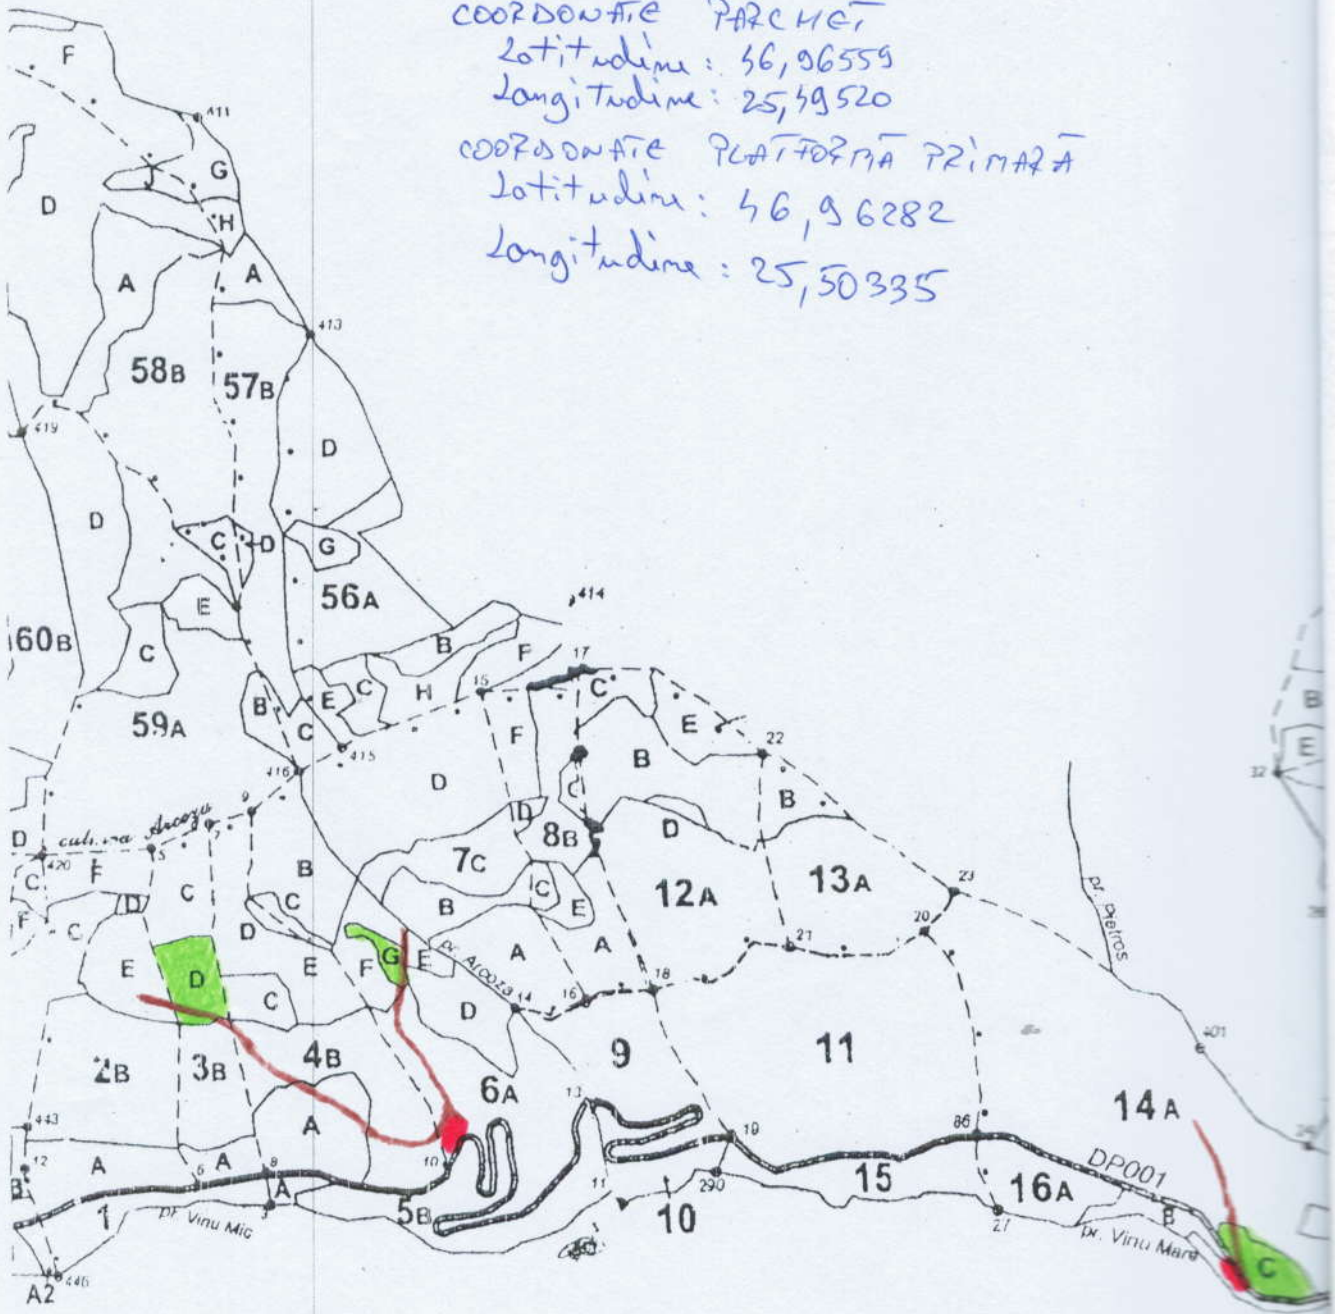 COORDONATE PARCHET
Latitudine: 46,96559
Longitudine: 25,49520
COORDONATE PLATFORMĂ PRIMARĂ
Latitudine: 46,96282
Longitudine: 25,50335
F
411
G
D
H
A
A
413
58B
57B
419
D
D
C
D
G
E
56A
414
60B
C
B
F
17
15
C
E
C
H
B
59A
C
E
F
22
415
416
B
D
B
9
culmea Arcozu
7
D
C
D
8B
D
420
5
F
C
B
7C
13A
23
C
D
C
C
12A
F
C
D
B
E
20
21
pr. Pietros
E
D
E
F
G
E
A
A
pr. Arcoza
18
C
14
16
D
401
2B
3B
4B
9
11
6A
13
14A
443
A
86
19
12
A
A
10
DP001
B
6
8
290
15
16A
A
11
1
pr. Vinu Mic
5B
10
27
B
pr. Vinu Mare
C
446
A2
B
E
32